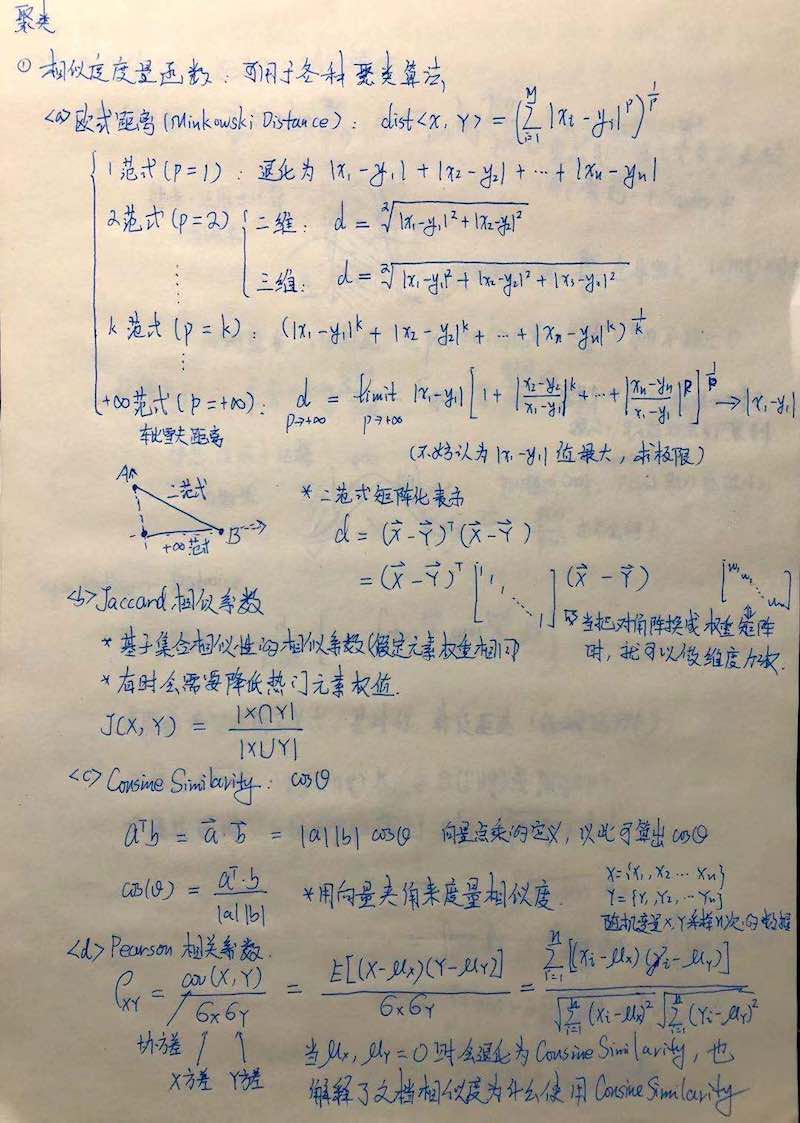 聚类
① 相似度度量函数：可用于各种聚类算法
<a> 欧式距离 (Minkowski Distance)： dist<X, Y> = (∑_{i=1}^{M} |x_i - y_i|^p)^{1/p}
1范式 (p=1)：退化为 |x_1-y_1| + |x_2-y_2| + … + |x_n-y_n|
2范式 (p=2) 二维： d = ²√(|x_1-y_1|² + |x_2-y_2|²)
三维： d = ²√(|x_1-y_1|² + |x_2-y_2|² + |x_3-y_3|²)
k范式 (p=k)： (|x_1-y_1|^k + |x_2-y_2|^k + … + |x_n-y_n|^k)^{1/k}
+∞范式 (p=+∞)： d_{p→+∞} = limit_{p→+∞} |x_1-y_1| [1 + |(x_2-y_2)/(x_1-y_1)|^k + … + |(x_n-y_n)/(x_1-y_1)|^p]^{1/p} → |x_1-y_1|
车比雪夫距离
(不妨认为 |x_1-y_1| 值最大，求极限)
A
二范式
B
+∞范式
* 二范式矩阵化表示
d = (X⃗-Y⃗)^T (X⃗-Y⃗)
= (X⃗-Y⃗)^T [1 1 ⋱ 1] (X⃗-Y⃗) [w_1 w_2 ⋱ w_n]
当把对角阵换成权重矩阵
时，就可以做维度加权.
<b> Jaccard 相似系数
* 基于集合相似性的相似系数 (假定元素权重相同)
* 有时会需要降低热门元素权值.
J(X, Y) = |X∩Y| / |X∪Y|
<c> Consine Similarity： cosθ
a^T b = a⃗·b⃗ = |a||b| cosθ 向量点乘的定义，以此可算出 cosθ
cos(θ) = a^T·b / |a||b| *用向量夹角来度量相似度.
X={X_1, X_2 … X_n}
Y={Y_1, Y_2, … Y_n}
随机变量X, Y采样n次的数据
<d> Pearson 相关系数.
ρ_{XY} = cov(X, Y) / σ_X σ_Y = E[(X-μ_X)(Y-μ_Y)] / σ_X σ_Y = ∑_{i=1}^{n} [(X_i-μ_X)(Y_i-μ_Y)] / √(∑_{i=1}^{n} (X_i-μ_X)²) √(∑_{i=1}^{n} (Y_i-μ_Y)²)
协方差
X方差 Y方差
当 μ_X, μ_Y = 0 时会退化为 Consine Similarity, 也
解释了文档相似度为什么使用 Consine Similarity